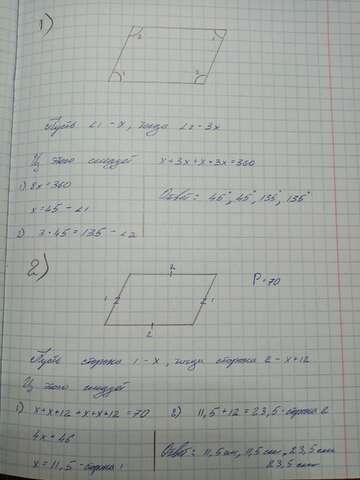 1)
2 1
1 2
Пусть ∠1 - x, тогда ∠2 - 3x
Из этого следует x+3x+x+3x=360
1) 8x=360
Ответ: 45°, 45°, 135°, 135°
x=45 - ∠1
2) 3·45=135 - ∠2
2)
2
P=70
1 1
2
Пусть сторона 1 - x, тогда сторона 2 - x+12
Из этого следует
1) x+x+12+x+x+12=70 2) 11,5+12=23,5-сторона 2
4x=46
Ответ: 11,5 см, 11,5 см, 23,5 см
x=11,5-сторона 1
23,5 см